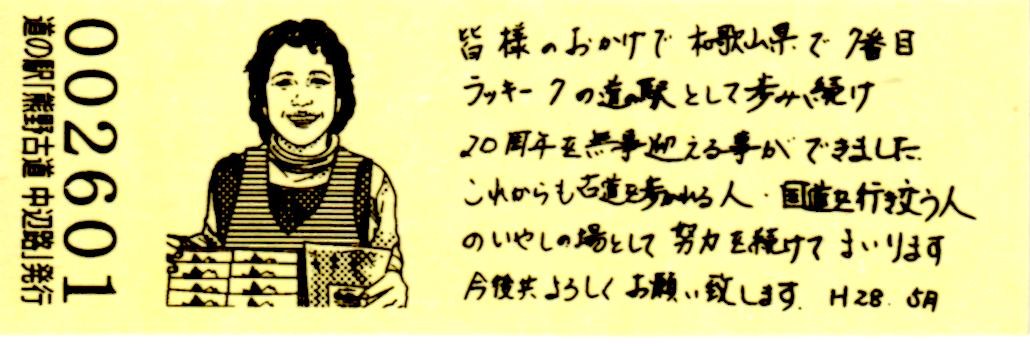 002601
道の駅「熊野古道中辺路」発行
皆様のおかげで 和歌山県で 7番目
ラッキー7の道の駅として歩み続け
20周年を無事迎える事ができました.
これからも古道を歩かれる人・国道を行き交う人
のいやしの場として 努力を続けてまいります
今後共よろしくお願い致します. H28. 5月